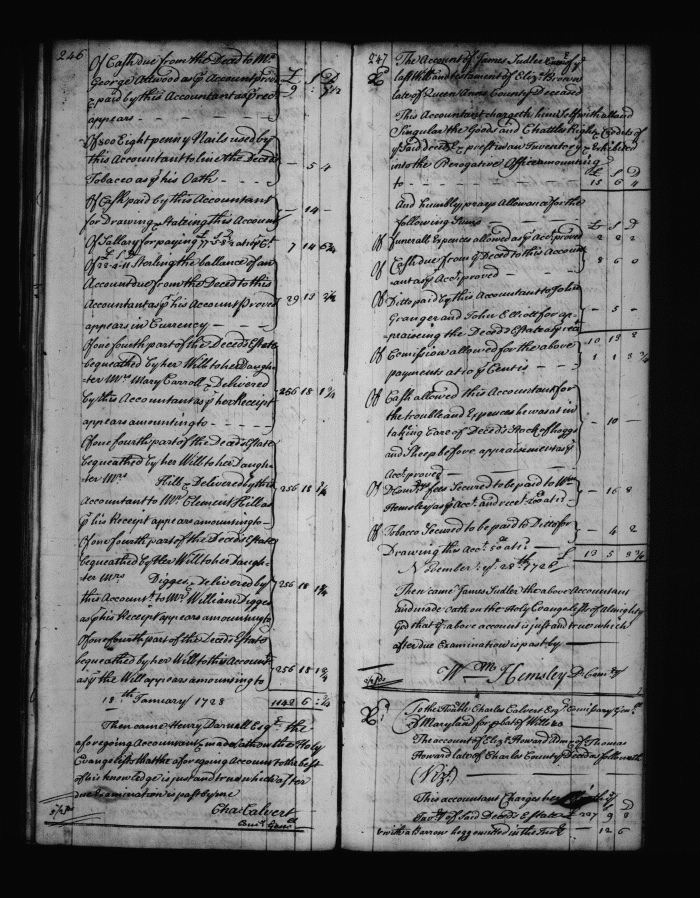 246
Of Cash due from the Deced to Mr.
George Attwood as pr Account proved
& paid by this Accountant as pr rect
appears - - - - -
£ S D
Of 500 Eight penny Nails used by
this Accountant to line the Deceds
Tobacco as pr his Oath - - - - - 5 4
Of Cash paid by this Accountant
for Drawing & Stateing this Account - 14 -
Of Sallary for paying
7 14
Of 22.4.11 Sterling the ballance of an
Account due from the Deced to this
Accountant as pr his Account proved
appears in Currency - 29 13
Of one fourth part of the Deceds Estate
bequeathed by her Will to her Daugh-
-ter Mrs. Mary Carroll & Delivered
by this Accountant as pr her Receipt
appears amounting to - 256 18 1¾
Of one fourth part of the Deceds Estate
bequeathed by her Will to her Daugh-
-ter Mrs. Hill & Delivered by this
Accountant to Mr. Clement Hill as
pr his Receipt appears amounting to - 256 18 1¾
Of one fourth part of the Deceds Estate
bequeathed by Her Will to her Daugh-
-ter Mrs. Digges & Delivered by
this Accountt. to Mr. William Digges
as pr his Receipt appears amounting to 256 18 1¾
Of one fourth part of the Deceds Estate
bequeathed by her Will to this Account.
as pr the Will appears amounting to 256 18 1¾
18th January 1728
1142 6
Then came Henry Darnall Esqr. the
aforegoing Accountant & made oath on the Holy
Evangelists that the aforegoing Account to the best
of his knowledge is just and true which after
due Examination is past by me
Cha: Calvert
Comry Genll
247
The Account of James Sudler Exer. of ye
last Will and testament of Eliza. Brown
late of Queen Anns County Deceased
This Accountant chargeth himself with all and
Singular the Goods and Chattles Rights & Credits of
ye Said decd & prest in an Inventory & Exhibited
into the Perogative Office amounting
to - - - - -
£ S D
15 6 4
And humbly prays Allowance for the
following Sums
£ S D
Of funerall Expences allowed as pr Acct. proved 2 2 2
Of Cash due from ye Deced to this Account-
-ant as pr Acct. proved - 8 6 0
Of Ditto paid by this Accountant to John
Granger and John Elliott for ap-
-praiseing the Deceds Estate as pr rect - 5 -
10 13 2
Of Comission allowed for the above
payments at 10 pr Cent is - - 1 1 3¾
Of Cash allowed this Accountant for
the trouble and Expences he was at in
taking Care of Deceds Stock of hoggs
and Sheep before appraisement as pr
Acct. proved - 10 -
Of Dcomrys fees Secured to be paid to Wm.
Hemsley as pr Acct. and rect. - 16 8
Of Tobacco Secured to be paid to Ditto for
Drawing this Acct. - 4 2
£ 13 5 3¾
November ye 28th 1728
Then came James Sudler the above Accountant
and made Oath on the Holy Evangelists of Almighty
God that ye above account is just and true which
after due Examination is past by
Wm. Hemsley Dy Comry
To the Honble Charles Calvert Esqr. Comissary Genll.
of Maryland for probat of Wills &c
The account of Eliza. Howard Admx. of Thomas
Howard late of Charles County Deced as followeth
(Vizt.)
This accountant Charges her
Invry of Said Deceds Estate £ 227 9 8
& with a Barrow hogg omitted in the Invry - 12 6